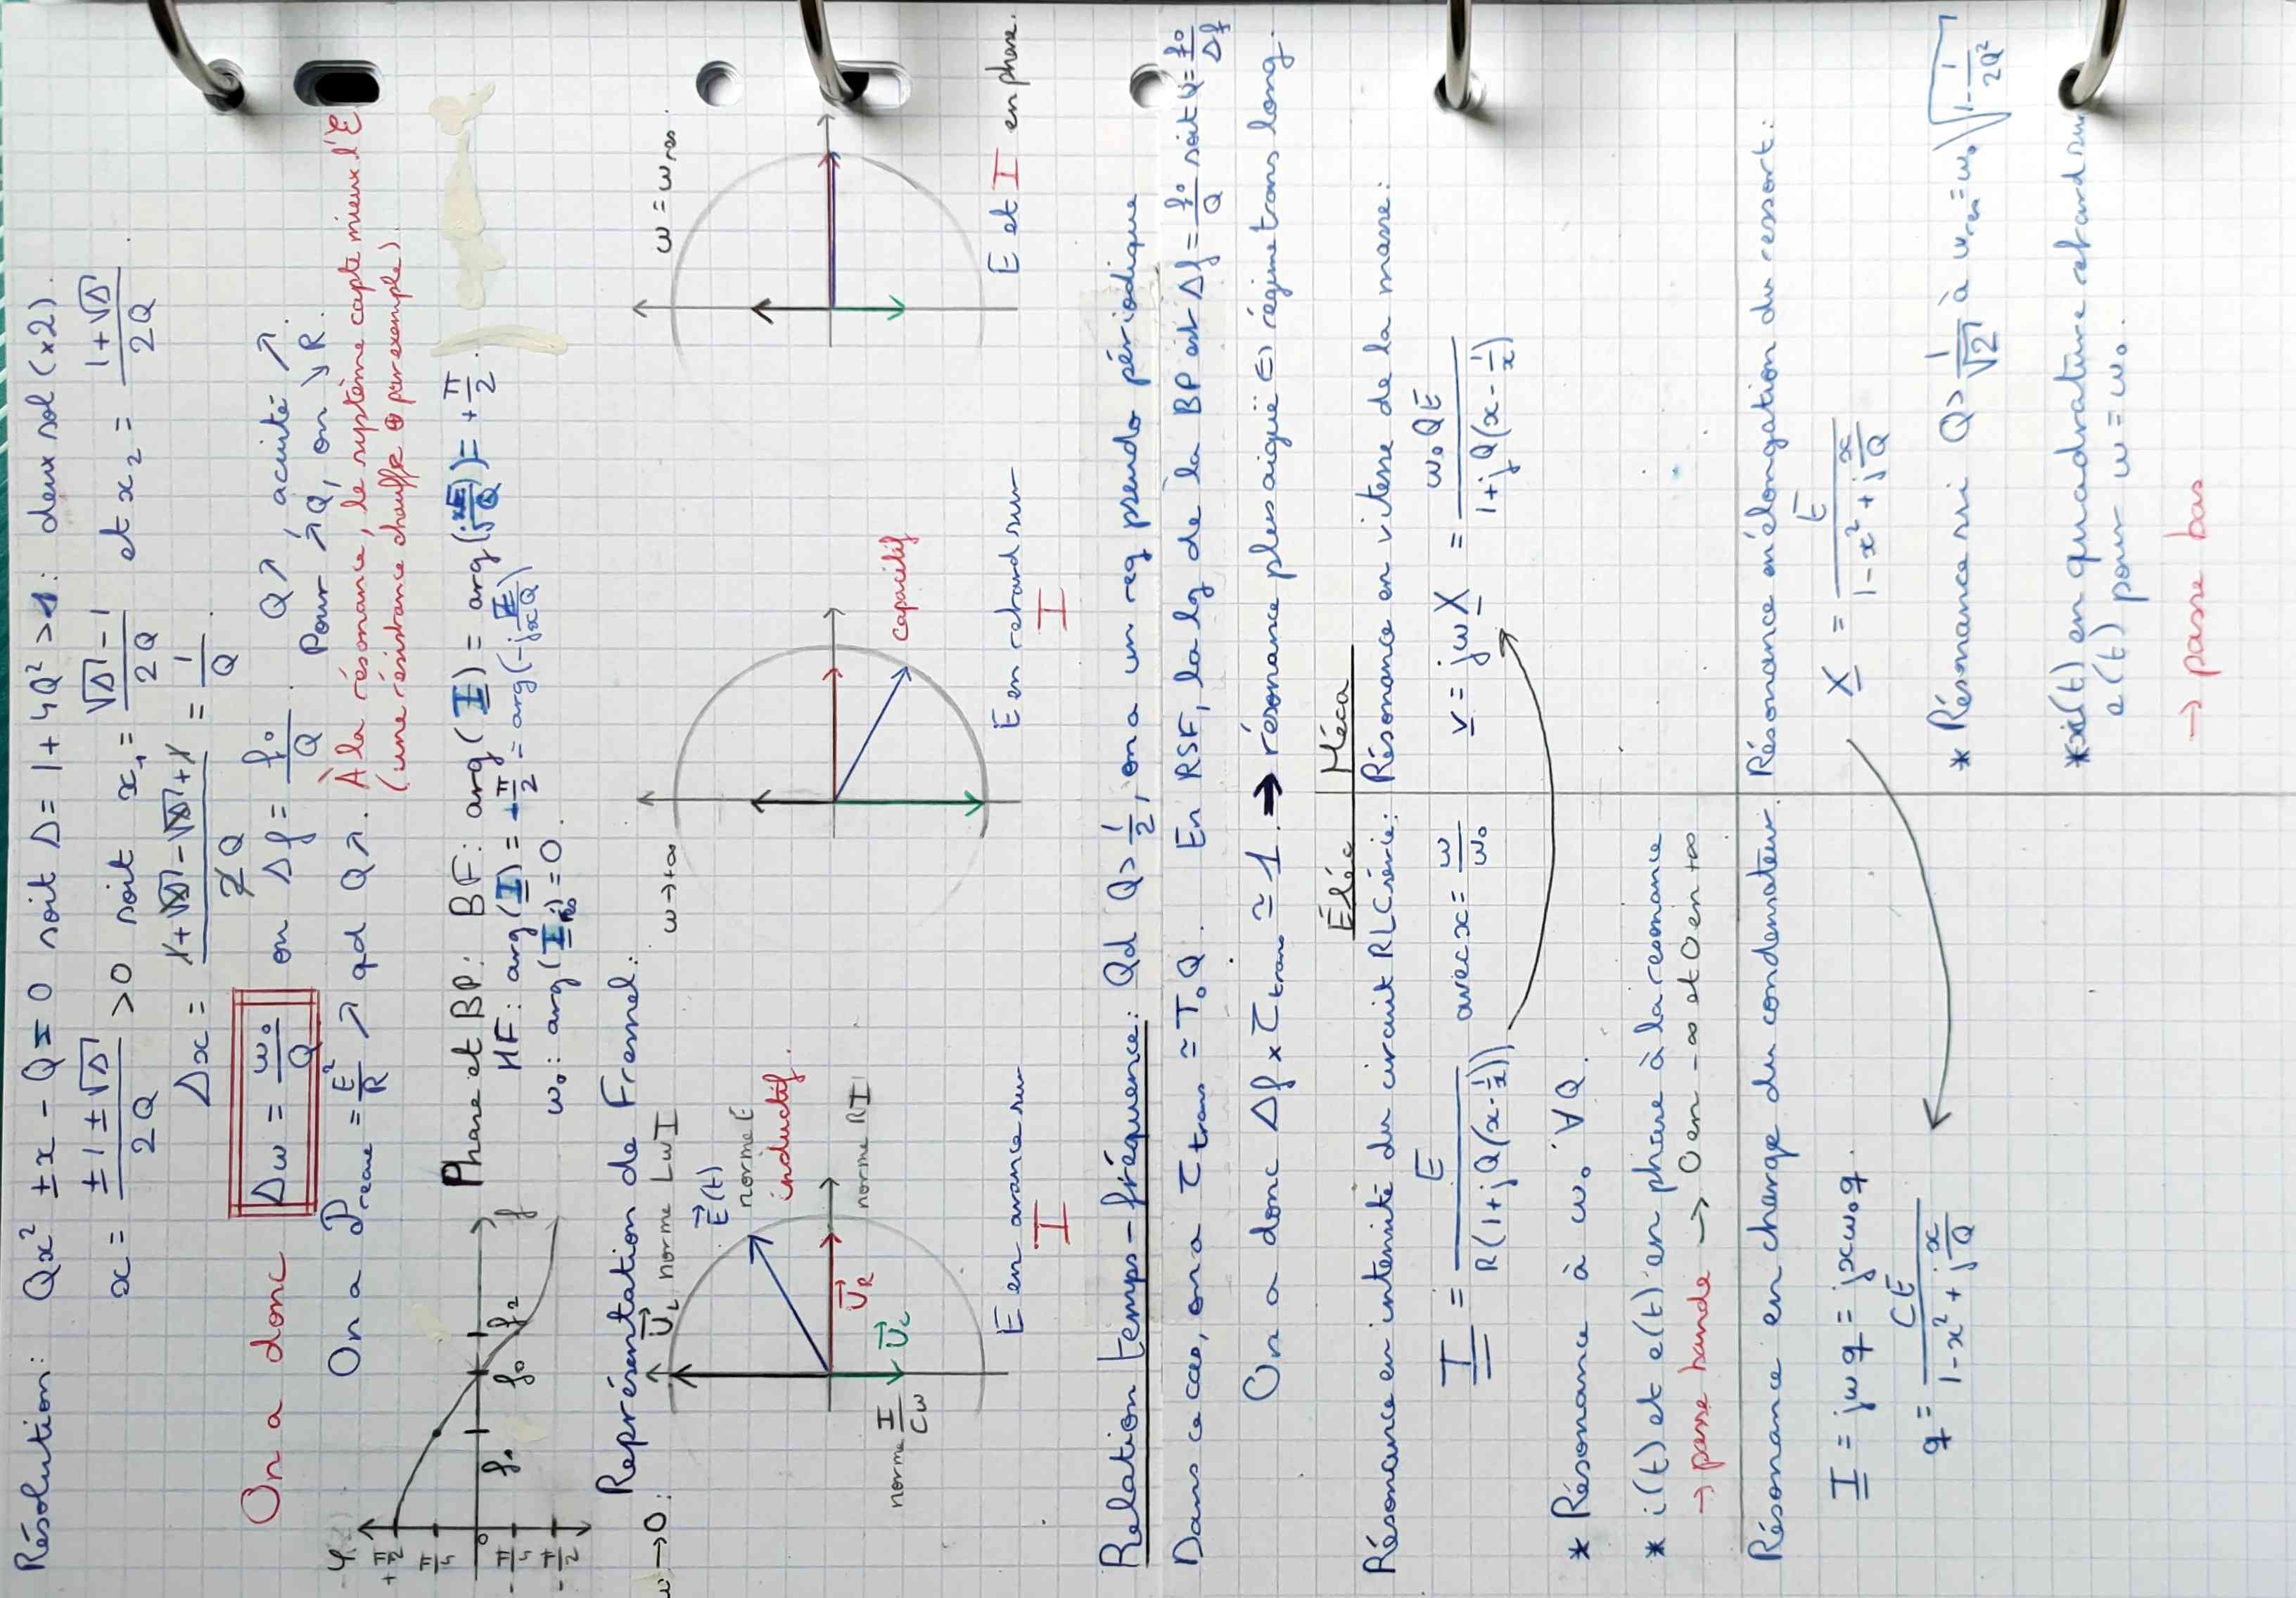 Résolution : Qx² ± x - Q = 0 soit Δ = 1 + 4Q² > 1 : deux sol (x2).
x = (±1 ± √Δ)/2Q > 0 soit x₁ = (√Δ - 1)/2Q et x₂ = (1 + √Δ)/2Q.
Δx = (1 + √Δ - √Δ + 1)/2Q = 1/Q.
On a donc Δω = ω₀/Q ou Δf = f₀/Q. Q↗, acuité ↗
Pour ↗Q, on ↘R.
On a P = E²/R ↗ qd Q↗. À la résonance, le système capte mieux l'E
(une résistance chauffe ⊕ par exemple).
φ
+π/2
π/4
0
-π/4
-π/2
f₁ f₀ f₂ f
Phase et BP : BF : arg(I) = = +π/2.
HF : arg(I) = -π/2
ω₀ : arg(I) = 0.
Représentation de Fresnel :
ω→0 :
U⃗L norme LωI
E⃗(t)
norme E
inductif.
U⃗R
norme RI
U⃗c
norme I/Cω
E en avance sur
I
ω→+∞
capacitif
E en retard sur
I
ω = ωres
E et I en phase.
Relation temps-fréquence : Qd Q > 1/2, on a un reg pseudo périodique
Dans ce cas, on a τtrans ≃ T₀Q. En RSF, la lg de la BP est Δf = f₀/Q soit Q = f₀/Δf
On a donc Δf × τtrans ≃ 1. → résonance plus aiguë ⇔ régime trans long.
Élec
Méca
Résonance en intensité du circuit RLC série :
I = E/(R(1 + jQ(x - 1/x))) avec x = ω/ω₀
* Résonance à ω₀ ∀Q.
* i(t) et e(t) en phase à la résonance
→ passe bande → 0 en -∞ et 0 en +∞
Résonance en vitesse de la masse :
v = jωX = ω₀QE/(1 + jQ(x - 1/x))
Résonance en charge du condensateur.
I = jωq = jxω₀q.
q = CE/(1 - x² + j x/Q)
Résonance en élongation du ressort :
X = E/(1 - x² + j x/Q)
* Résonance ssi Q > 1/√2 à ωres = ω₀√(1 - 1/2Q²)
* x(t) en quadrature retard sur
e(t) pour ω = ω₀.
→ passe bas